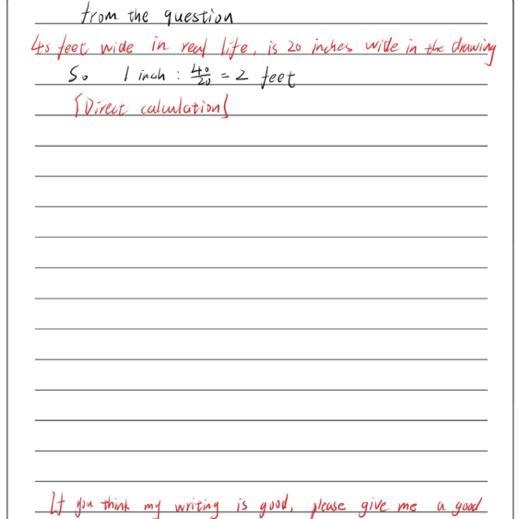 from the question
40 feet wide in real life, is 20 inches wide in the drawing
So 1 inch : 40/20 = 2 feet
[Direct calculation]
If you think my writing is good, please give me a good